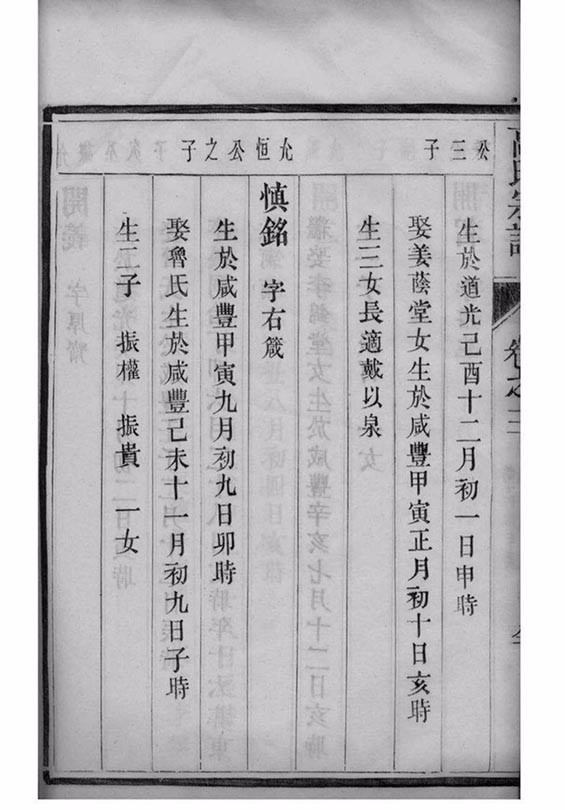 高氏宗譜
卷之三
公三子
生於道光己酉十二月初一日申時
娶姜蔭堂女生於咸豐甲寅正月初十日亥時
生三女長適戴以泉
允恒公之子
慎銘 字右箴
生於咸豐甲寅九月初九日卯時
娶魯氏生於咸豐己未十一月初九日子時
生二子 振權 振貴 一女